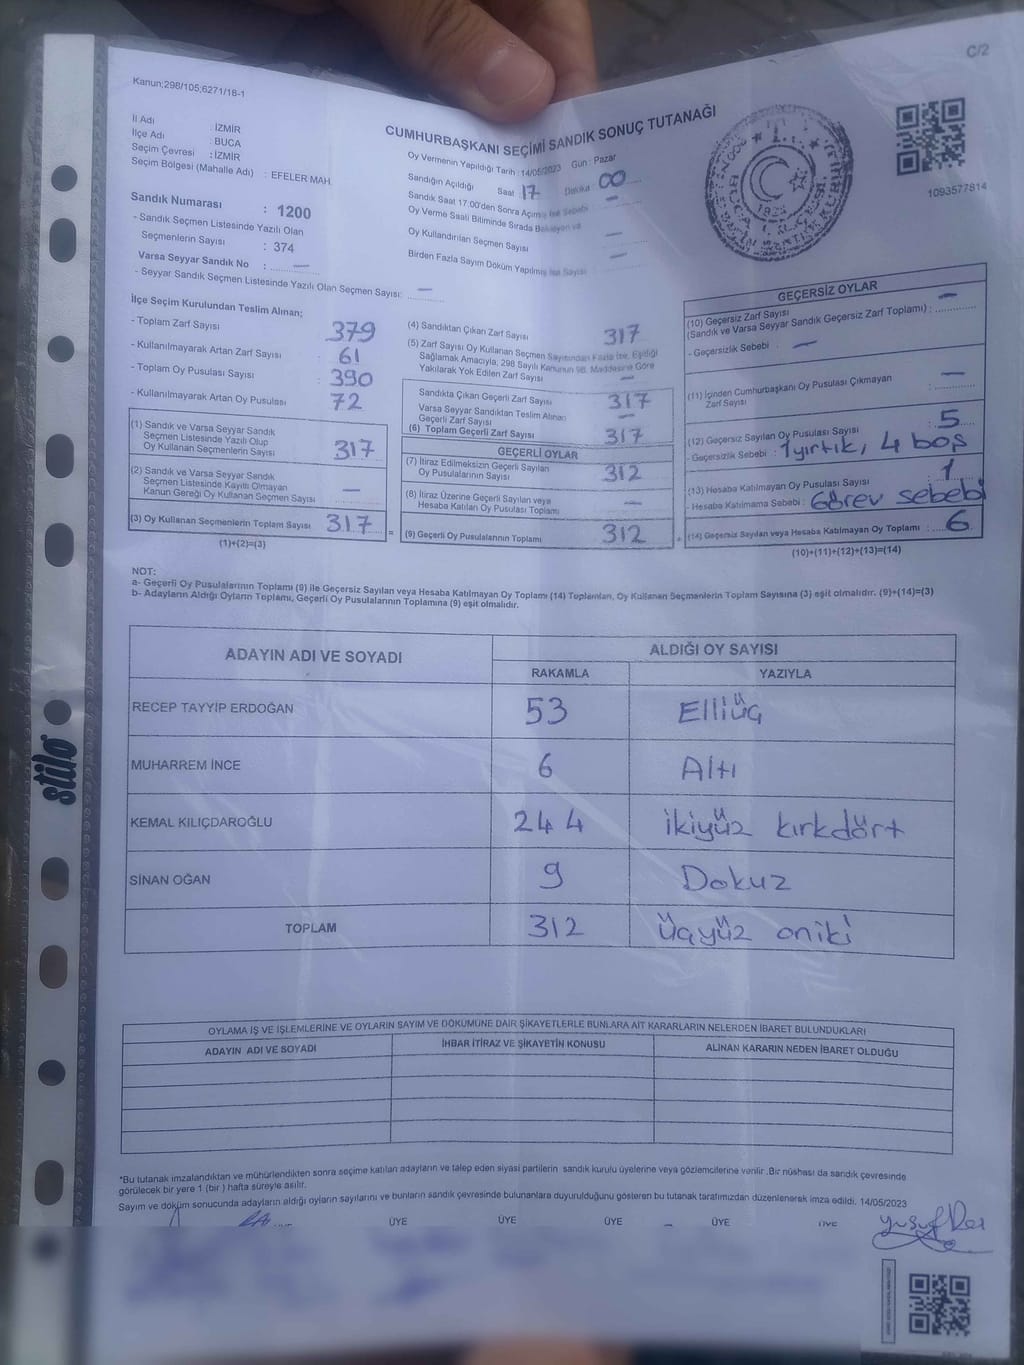 C/2
Kanun;298/105;6271/18-1
1093577814
CUMHURBAŞKANI SEÇİMİ SANDIK SONUÇ TUTANAĞI
İl Adı : İZMİR
İlçe Adı : BUCA
Seçim Çevresi : İZMİR
Seçim Bölgesi (Mahalle Adı) : EFELER MAH.
Sandık Numarası : 1200
- Sandık Seçmen Listesinde Yazılı Olan
Seçmenlerin Sayısı : 374
Varsa Seyyar Sandık No : —
- Seyyar Sandık Seçmen Listesinde Yazılı Olan Seçmen Sayısı: —
Oy Vermenin Yapıldığı Tarih : 14/05/2023 Gün : Pazar
Sandığın Açıldığı Saat 17 Dakika : 00
Sandık Saat 17.00'den Sonra Açılmış İse Sebebi —
Oy Verme Saati Bitiminde Sırada Bekleyen ve
Oy Kullandırılan Seçmen Sayısı —
Birden Fazla Sayım Döküm Yapılmış İse Sayısı : —
İlçe Seçim Kurulundan Teslim Alınan;
- Toplam Zarf Sayısı 379
- Kullanılmayarak Artan Zarf Sayısı : 61
- Toplam Oy Pusulası Sayısı : 390
- Kullanılmayarak Artan Oy Pusulası : 72
(1) Sandık ve Varsa Seyyar Sandık
Seçmen Listesinde Yazılı Olup
Oy Kullanan Seçmenlerin Sayısı : 317
(2) Sandık ve Varsa Seyyar Sandık
Seçmen Listesinde Kayıtlı Olmayan
Kanun Gereği Oy Kullanan Seçmen Sayısı : —
(3) Oy Kullanan Seçmenlerin Toplam Sayısı : 317 =
(1)+(2)=(3)
(4) Sandıktan Çıkan Zarf Sayısı : 317
(5) Zarf Sayısı Oy Kullanan Seçmen Sayısından Fazla İse, Eşitliği
Sağlamak Amacıyla, 298 Sayılı Kanunun 98. Maddesine Göre
Yakılarak Yok Edilen Zarf Sayısı : —
Sandıkta Çıkan Geçerli Zarf Sayısı : 317
Varsa Seyyar Sandıktan Teslim Alınan
Geçerli Zarf Sayısı : —
(6) Toplam Geçerli Zarf Sayısı : 317
GEÇERLİ OYLAR
(7) İtiraz Edilmeksizin Geçerli Sayılan
Oy Pusulalarının Sayısı : 312
(8) İtiraz Üzerine Geçerli Sayılan veya
Hesaba Katılan Oy Pusulası Toplamı : —
(9) Geçerli Oy Pusulalarının Toplamı : 312 +
GEÇERSİZ OYLAR
(10) Geçersiz Zarf Sayısı
(Sandık ve Varsa Seyyar Sandık Geçersiz Zarf Toplamı) : —
- Geçersizlik Sebebi : —
(11) İçinden Cumhurbaşkanı Oy Pusulası Çıkmayan
Zarf Sayısı : —
(12) Geçersiz Sayılan Oy Pusulası Sayısı : 5
- Geçersizlik Sebebi : 1 yırtık, 4 boş
(13) Hesaba Katılmayan Oy Pusulası Sayısı : 1
- Hesaba Katılmama Sebebi : Görev sebebi
(14) Geçersiz Sayılan veya Hesaba Katılmayan Oy Toplamı : 6
(10)+(11)+(12)+(13)=(14)
NOT:
a- Geçerli Oy Pusulalarının Toplamı (9) ile Geçersiz Sayılan veya Hesaba Katılmayan Oy Toplamı (14) Toplamları, Oy Kullanan Seçmenlerin Toplam Sayısına (3) eşit olmalıdır. (9)+(14)=(3)
b- Adayların Aldığı Oyların Toplamı, Geçerli Oy Pusulalarının Toplamına (9) eşit olmalıdır.
ADAYIN ADI VE SOYADI ALDIĞI OY SAYISI
RAKAMLA YAZIYLA
RECEP TAYYİP ERDOĞAN 53 Elliüç
MUHARREM İNCE 6 Altı
KEMAL KILIÇDAROĞLU 244 ikiyüz kırkdört
SİNAN OĞAN 9 Dokuz
TOPLAM 312 üçyüz oniki
stilo
OYLAMA İŞ VE İŞLEMLERİNE VE OYLARIN SAYIM VE DÖKÜMÜNE DAİR ŞİKAYETLERLE BUNLARA AİT KARARLARIN NELERDEN İBARET BULUNDUKLARI
ADAYIN ADI VE SOYADI İHBAR İTİRAZ VE ŞİKAYETİN KONUSU ALINAN KARARIN NEDEN İBARET OLDUĞU
*Bu tutanak imzalandıktan ve mühürlendikten sonra seçime katılan adayların ve talep eden siyasi partilerin sandık kurulu üyelerine veya gözlemcilerine verilir. Bir nüshası da sandık çevresinde
görülecek bir yere 1 (bir) hafta süreyle asılır.
Sayım ve döküm sonucunda adayların aldığı oyların sayılarını ve bunların sandık çevresinde bulunanlara duyurulduğunu gösteren bu tutanak tarafımızdan düzenlenerek imza edildi. 14/05/2023
ÜYE ÜYE ÜYE ÜYE ÜYE